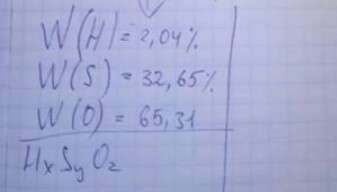 W(H) = 2,04%
W(S) = 32,65%
W(O) = 65,31
HxSyOz